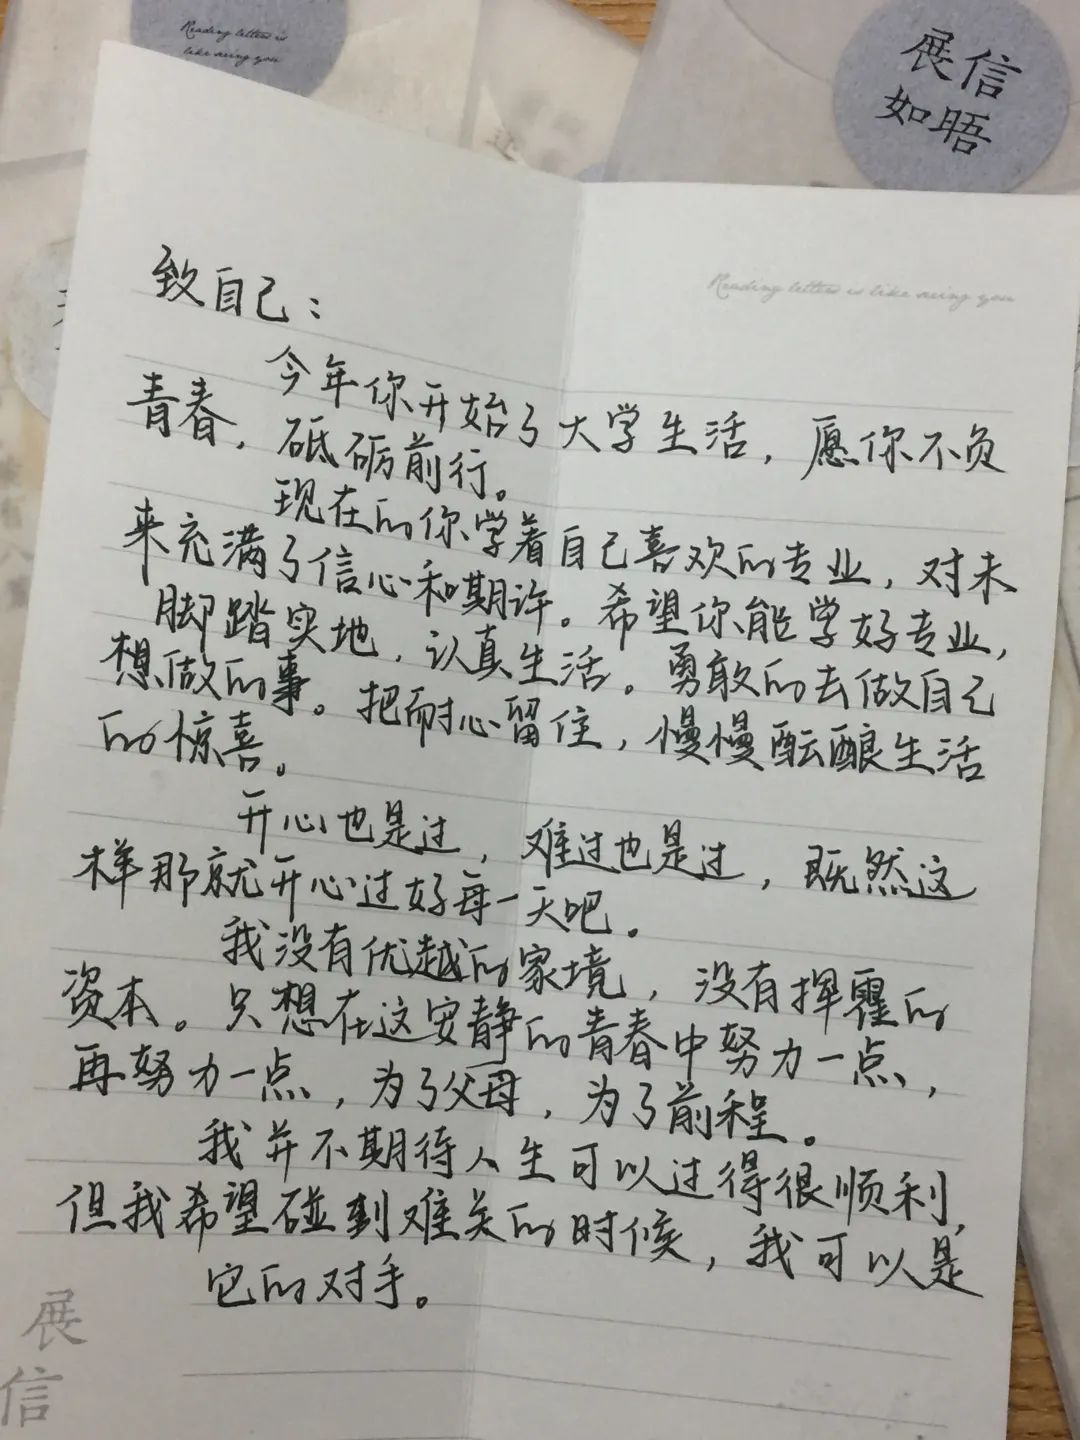 Reading letters is
like seeing you
展信
如晤
Reading letters is like seeing you
致自己：
今年你开始了大学生活，愿你不负
青春，砥砺前行。
现在的你学着自己喜欢的专业，对未
来充满了信心和期许。希望你能学好专业，
脚踏实地，认真生活。勇敢的去做自己
想做的事。把耐心留住，慢慢酝酿生活
的惊喜。
开心也是过，难过也是过，既然这
样那就开心过好每一天吧。
我没有优越的家境，没有挥霍的
资本。只想在这安静的青春中努力一点，
再努力一点，为了父母，为了前程。
我并不期待人生可以过得很顺利，
但我希望碰到难关的时候，我可以是
它的对手。
展
信